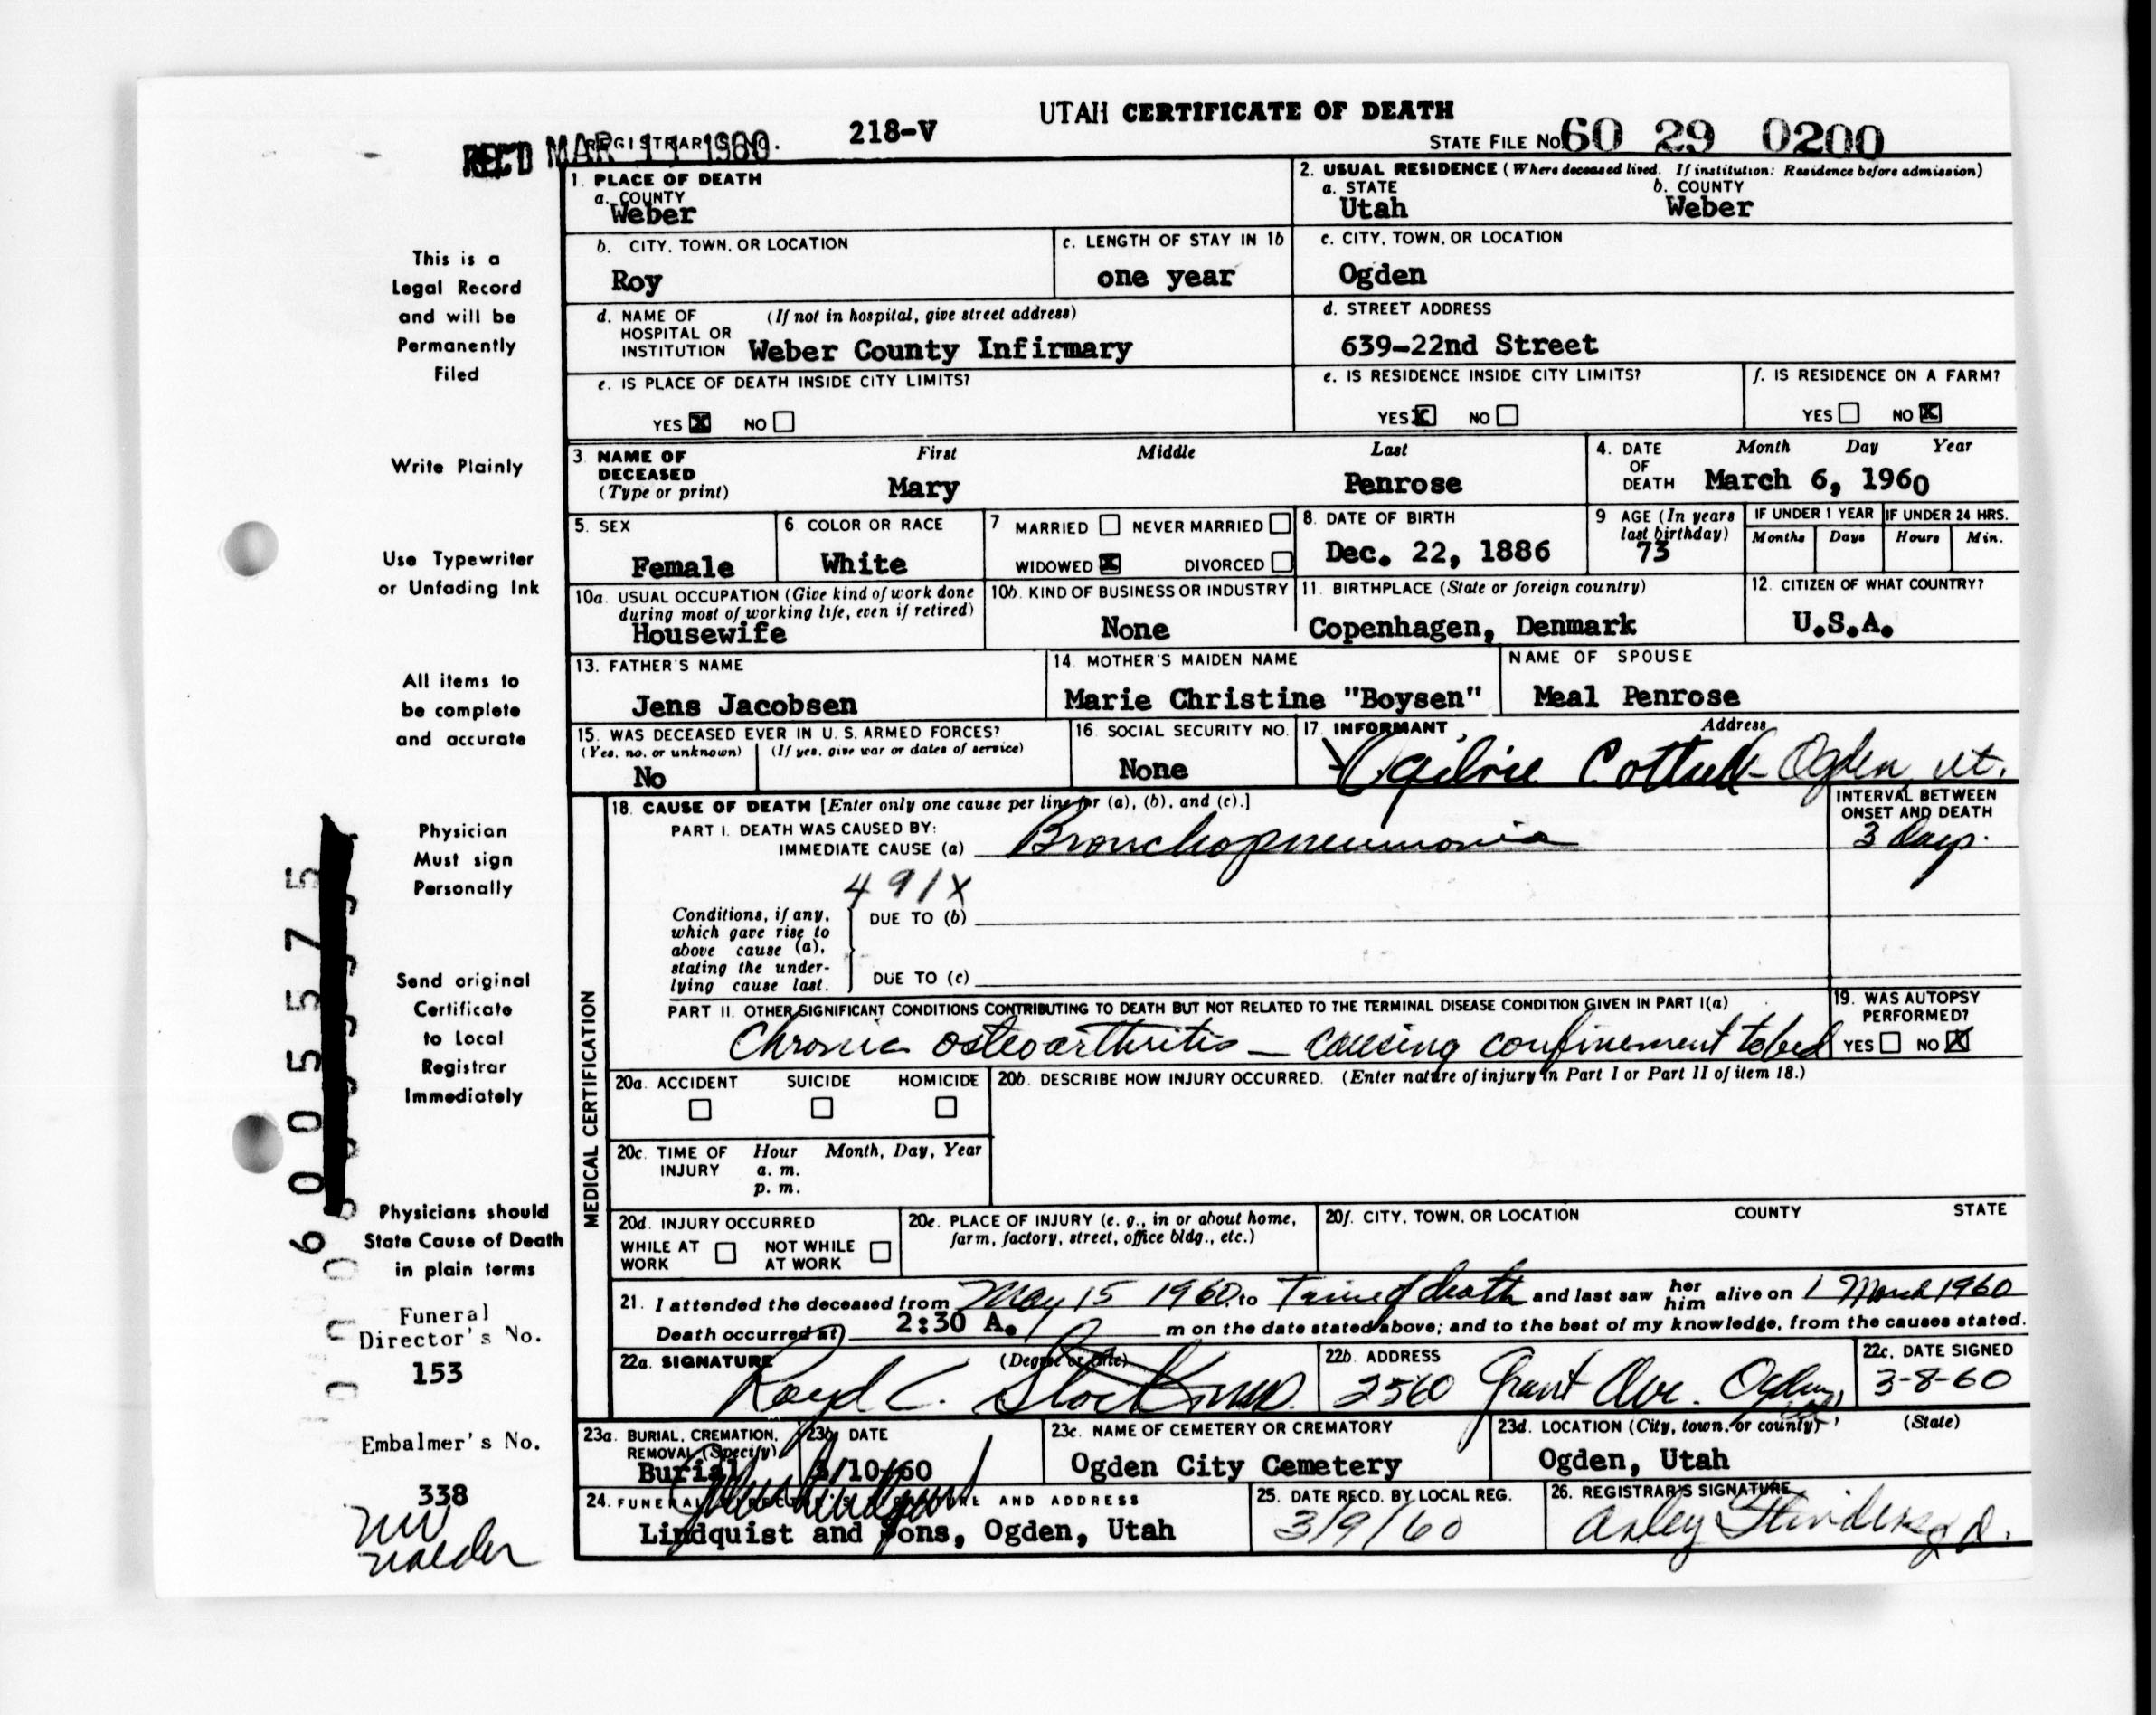 UTAH CERTIFICATE OF DEATH
REC'D MAR 11 1960
REGISTRAR'S NO. 218-V
STATE FILE NO. 60 29 0200
This is a
Legal Record
and will be
Permanently
Filed
Write Plainly
Use Typewriter
or Unfading Ink
All items to
be complete
and accurate
Physician
Must sign
Personally
Send original
Certificate
to Local
Registrar
Immediately
Physicians should
State Cause of Death
in plain terms
Funeral
Director's No.
153
Embalmer's No.
338
6005575
1. PLACE OF DEATH
a. COUNTY
Weber
2. USUAL RESIDENCE (Where deceased lived. If institution: Residence before admission)
a. STATE b. COUNTY
Utah Weber
b. CITY, TOWN, OR LOCATION
Roy
c. LENGTH OF STAY IN 1b
one year
c. CITY, TOWN, OR LOCATION
Ogden
d. NAME OF (If not in hospital, give street address)
HOSPITAL OR
INSTITUTION Weber County Infirmary
d. STREET ADDRESS
639-22nd Street
e. IS PLACE OF DEATH INSIDE CITY LIMITS?
YES X NO
e. IS RESIDENCE INSIDE CITY LIMITS?
YES X NO
f. IS RESIDENCE ON A FARM?
YES NO X
3. NAME OF First Middle Last
DECEASED
(Type or print) Mary Penrose
4. DATE Month Day Year
OF
DEATH March 6, 1960
5. SEX
Female
6 COLOR OR RACE
White
7 MARRIED NEVER MARRIED
WIDOWED X DIVORCED
8. DATE OF BIRTH
Dec. 22, 1886
9 AGE (In years
last birthday)
73
IF UNDER 1 YEAR IF UNDER 24 HRS.
Months Days Hours Min.
10a. USUAL OCCUPATION (Give kind of work done
during most of working life, even if retired)
Housewife
10b. KIND OF BUSINESS OR INDUSTRY
None
11. BIRTHPLACE (State or foreign country)
Copenhagen, Denmark
12. CITIZEN OF WHAT COUNTRY?
U.S.A.
13. FATHER'S NAME
Jens Jacobsen
14. MOTHER'S MAIDEN NAME
Marie Christine "Boysen"
NAME OF SPOUSE
Meal Penrose
15. WAS DECEASED EVER IN U. S. ARMED FORCES?
(Yes, no, or unknown) (If yes, give war or dates of service)
No
16. SOCIAL SECURITY NO.
None
17. INFORMANT Address
Ogilvie Ogden, Ut.
18. CAUSE OF DEATH [Enter only one cause per line for (a), (b), and (c).]
PART I. DEATH WAS CAUSED BY:
IMMEDIATE CAUSE (a) Bronchopneumonia
INTERVAL BETWEEN
ONSET AND DEATH
3 Days.
491X
Conditions, if any,
which gave rise to
above cause (a),
stating the under-
lying cause last.
DUE TO (b)
DUE TO (c)
PART II. OTHER SIGNIFICANT CONDITIONS CONTRIBUTING TO DEATH BUT NOT RELATED TO THE TERMINAL DISEASE CONDITION GIVEN IN PART I(a)
Chronic osteoarthritis — causing confinement to bed
19. WAS AUTOPSY
PERFORMED?
YES NO X
MEDICAL CERTIFICATION
20a. ACCIDENT SUICIDE HOMICIDE
20b. DESCRIBE HOW INJURY OCCURRED. (Enter nature of injury in Part I or Part II of item 18.)
20c. TIME OF Hour Month, Day, Year
INJURY a. m.
p. m.
20d. INJURY OCCURRED
WHILE AT NOT WHILE
WORK AT WORK
20e. PLACE OF INJURY (e. g., in or about home,
farm, factory, street, office bldg., etc.)
20f. CITY, TOWN, OR LOCATION COUNTY STATE
21. I attended the deceased from May 15 1960, to Time of death and last saw her him alive on 1 March 1960
Death occurred at 2:30 A. m on the date stated above; and to the best of my knowledge, from the causes stated.
22a. SIGNATURE (Degree or title)
22b. ADDRESS
2560 Grant Ave. Ogden,
22c. DATE SIGNED
3-8-60
23a. BURIAL, CREMATION,
REMOVAL (Specify)
Burial
23b. DATE
3/10/60
23c. NAME OF CEMETERY OR CREMATORY
Ogden City Cemetery
23d. LOCATION (City, town, or county) (State)
Ogden, Utah
24. FUNERAL DIRECTOR'S SIGNATURE AND ADDRESS
Lindquist and Sons, Ogden, Utah
25. DATE RECD. BY LOCAL REG.
3/9/60
26. REGISTRAR'S SIGNATURE